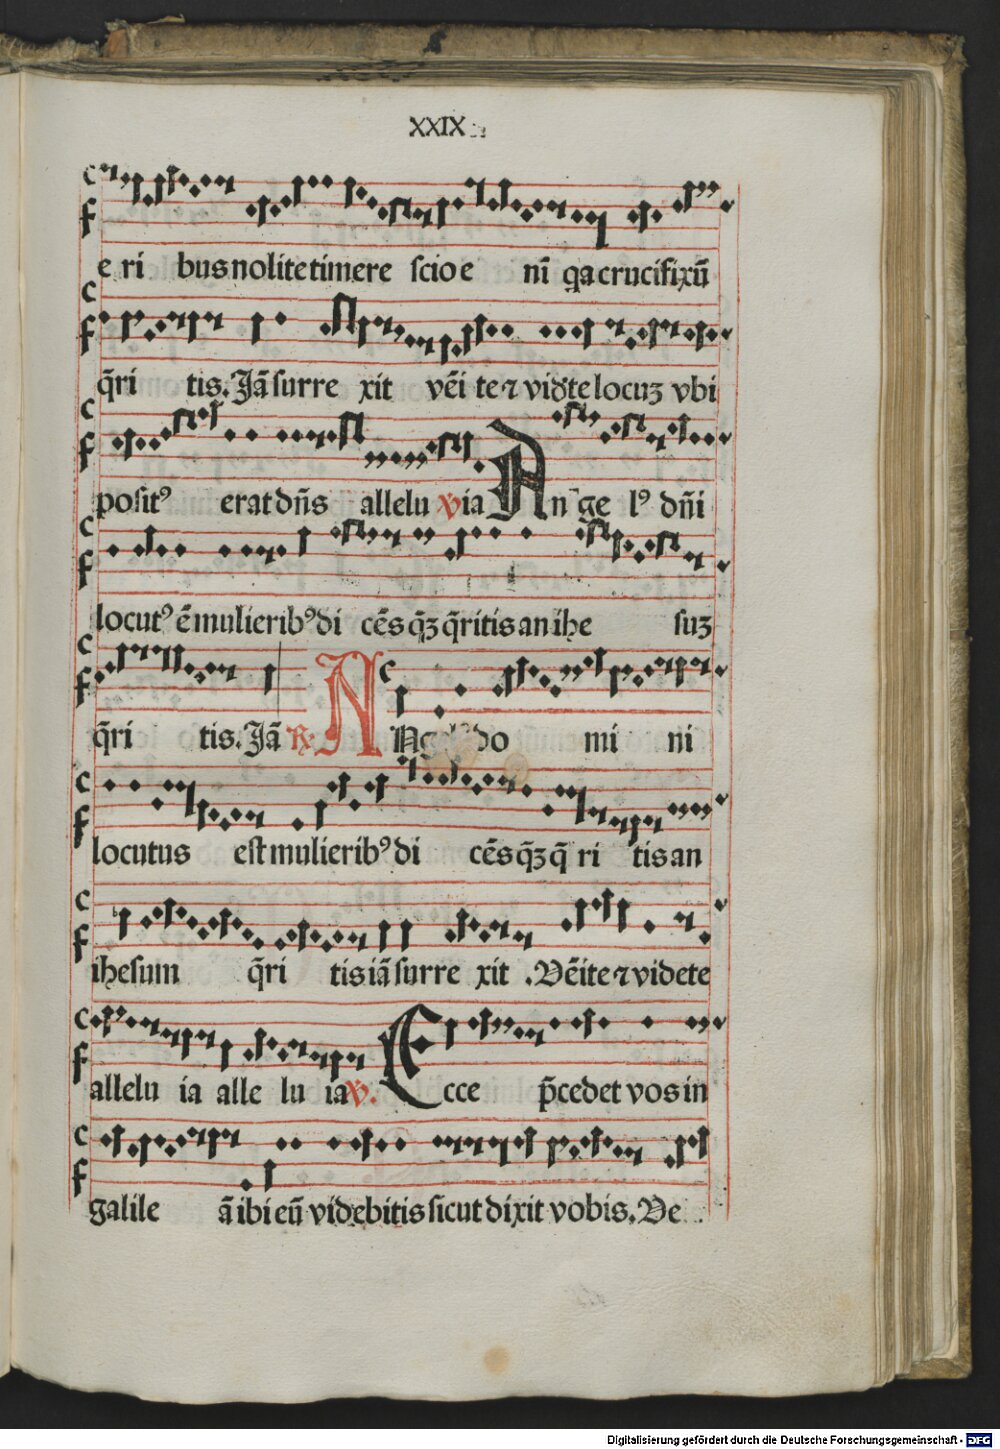 XXIX
e ri bus nolite timere scio e ni᷑ q̄a crucifixū
q̄ri tis. Jā surre xit vēi te ⁊ vidēte locuꝫ vbi
posit⁹ erat dn̄s allelu ꝟ ia An ge l⁹ dn̄i
locut⁹ ē mulierib⁹ di cēs q̄ꝫ q̄ritis an ihe suꝫ
q̄ri tis. Jā ℟. ANge do mi ni
locutus est mulierib⁹ di cēs q̄ꝫ q̄ ri tis an
ihesum q̄ri tis iā surre xit . Vēite ⁊ videte
allelu ia alle lu ia ꝟ. Ecce p̄cedet vos in
galile ā ibi eū videbitis sicut dixit vobis. Ve
Digitalisierung gefördert durch die Deutsche Forschungsgemeinschaft - DFG